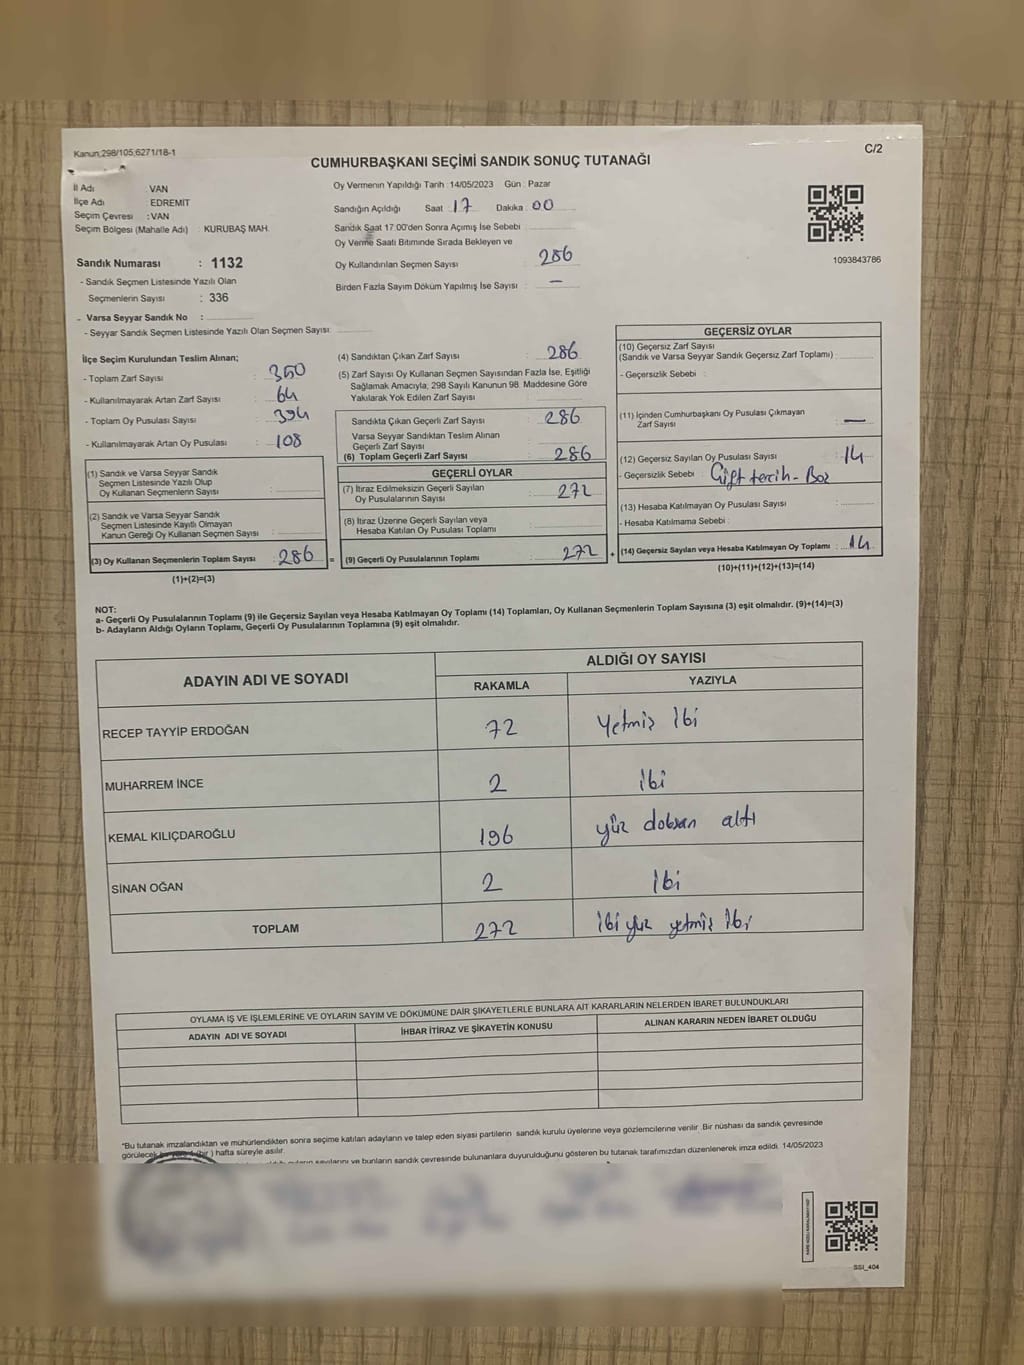 Kanun;298/105;6271/18-1
C/2
CUMHURBAŞKANI SEÇİMİ SANDIK SONUÇ TUTANAĞI
İl Adı : VAN
İlçe Adı : EDREMİT
Seçim Çevresi : VAN
Seçim Bölgesi (Mahalle Adı) : KURUBAŞ MAH.
Oy Vermenin Yapıldığı Tarih : 14/05/2023 Gün : Pazar
Sandığın Açıldığı Saat 17 Dakika : 00
Sandık Saat 17:00'den Sonra Açılmış İse Sebebi
Oy Verme Saati Bitiminde Sırada Bekleyen ve
Oy Kullandırılan Seçmen Sayısı : 286
Birden Fazla Sayım Döküm Yapılmış İse Sayısı : —
1093843786
Sandık Numarası : 1132
- Sandık Seçmen Listesinde Yazılı Olan
Seçmenlerin Sayısı : 336
- Varsa Seyyar Sandık No :
- Seyyar Sandık Seçmen Listesinde Yazılı Olan Seçmen Sayısı:
İlçe Seçim Kurulundan Teslim Alınan;
- Toplam Zarf Sayısı : 350
- Kullanılmayarak Artan Zarf Sayısı : 64
- Toplam Oy Pusulası Sayısı : 394
- Kullanılmayarak Artan Oy Pusulası : 108
(1) Sandık ve Varsa Seyyar Sandık
Seçmen Listesinde Yazılı Olup
Oy Kullanan Seçmenlerin Sayısı :
(2) Sandık ve Varsa Seyyar Sandık
Seçmen Listesinde Kayıtlı Olmayan
Kanun Gereği Oy Kullanan Seçmen Sayısı :
(3) Oy Kullanan Seçmenlerin Toplam Sayısı : 286
(1)+(2)=(3)
(4) Sandıktan Çıkan Zarf Sayısı : 286
(5) Zarf Sayısı Oy Kullanan Seçmen Sayısından Fazla İse, Eşitliği
Sağlamak Amacıyla; 298 Sayılı Kanunun 98. Maddesine Göre
Yakılarak Yok Edilen Zarf Sayısı :
Sandıkta Çıkan Geçerli Zarf Sayısı : 286
Varsa Seyyar Sandıktan Teslim Alınan
Geçerli Zarf Sayısı :
(6) Toplam Geçerli Zarf Sayısı : 286
GEÇERLİ OYLAR
(7) İtiraz Edilmeksizin Geçerli Sayılan
Oy Pusulalarının Sayısı : 272
(8) İtiraz Üzerine Geçerli Sayılan veya
Hesaba Katılan Oy Pusulası Toplamı :
= (9) Geçerli Oy Pusulalarının Toplamı : 272 +
GEÇERSİZ OYLAR
(10) Geçersiz Zarf Sayısı
(Sandık ve Varsa Seyyar Sandık Geçersiz Zarf Toplamı) :
- Geçersizlik Sebebi :
(11) İçinden Cumhurbaşkanı Oy Pusulası Çıkmayan
Zarf Sayısı : —
(12) Geçersiz Sayılan Oy Pusulası Sayısı : 14
- Geçersizlik Sebebi : Çift tercih - Boz
(13) Hesaba Katılmayan Oy Pusulası Sayısı :
- Hesaba Katılmama Sebebi :
(14) Geçersiz Sayılan veya Hesaba Katılmayan Oy Toplamı : 14
(10)+(11)+(12)+(13)=(14)
NOT:
a- Geçerli Oy Pusulalarının Toplamı (9) ile Geçersiz Sayılan veya Hesaba Katılmayan Oy Toplamı (14) Toplamları, Oy Kullanan Seçmenlerin Toplam Sayısına (3) eşit olmalıdır. (9)+(14)=(3)
b- Adayların Aldığı Oyların Toplamı, Geçerli Oy Pusulalarının Toplamına (9) eşit olmalıdır.
ADAYIN ADI VE SOYADI
ALDIĞI OY SAYISI
RAKAMLA YAZIYLA
RECEP TAYYİP ERDOĞAN 72 yetmiş iki
MUHARREM İNCE 2 iki
KEMAL KILIÇDAROĞLU 196 yüz doksan altı
SİNAN OĞAN 2 iki
TOPLAM 272 iki yüz yetmiş iki
OYLAMA İŞ VE İŞLEMLERİNE VE OYLARIN SAYIM VE DÖKÜMÜNE DAİR ŞİKAYETLERLE BUNLARA AİT KARARLARIN NELERDEN İBARET BULUNDUKLARI
ADAYIN ADI VE SOYADI İHBAR İTİRAZ VE ŞİKAYETİN KONUSU ALINAN KARARIN NEDEN İBARET OLDUĞU
*Bu tutanak imzalandıktan ve mühürlendikten sonra seçime katılan adayların ve talep eden siyasi partilerin sandık kurulu üyelerine veya gözlemcilerine verilir. Bir nüshası da sandık çevresinde
görülecek bir yere 1 (bir ) hafta süreyle asılır.
sayılarını ve bunların sandık çevresinde bulunanlara duyurulduğunu gösteren bu tutanak tarafımızdan düzenlenerek imza edildi. 14/05/2023
SSI_404